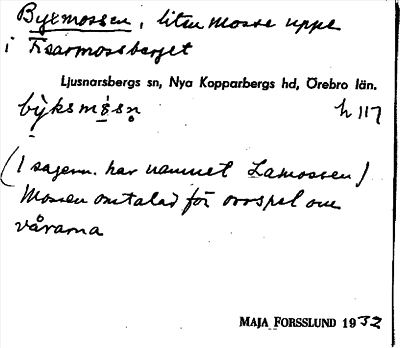 Byxmossen, liten mosse uppe
i Fisarmossberget
Ljusnarsbergs sn, Nya Kopparbergs hd, Örebro län.
býksmòsn̥ h 117
(I sägenn. har namnet Lamossen)
Mossen omtalad för orrspel om
vårarna
MAJA FORSSLUND 1932